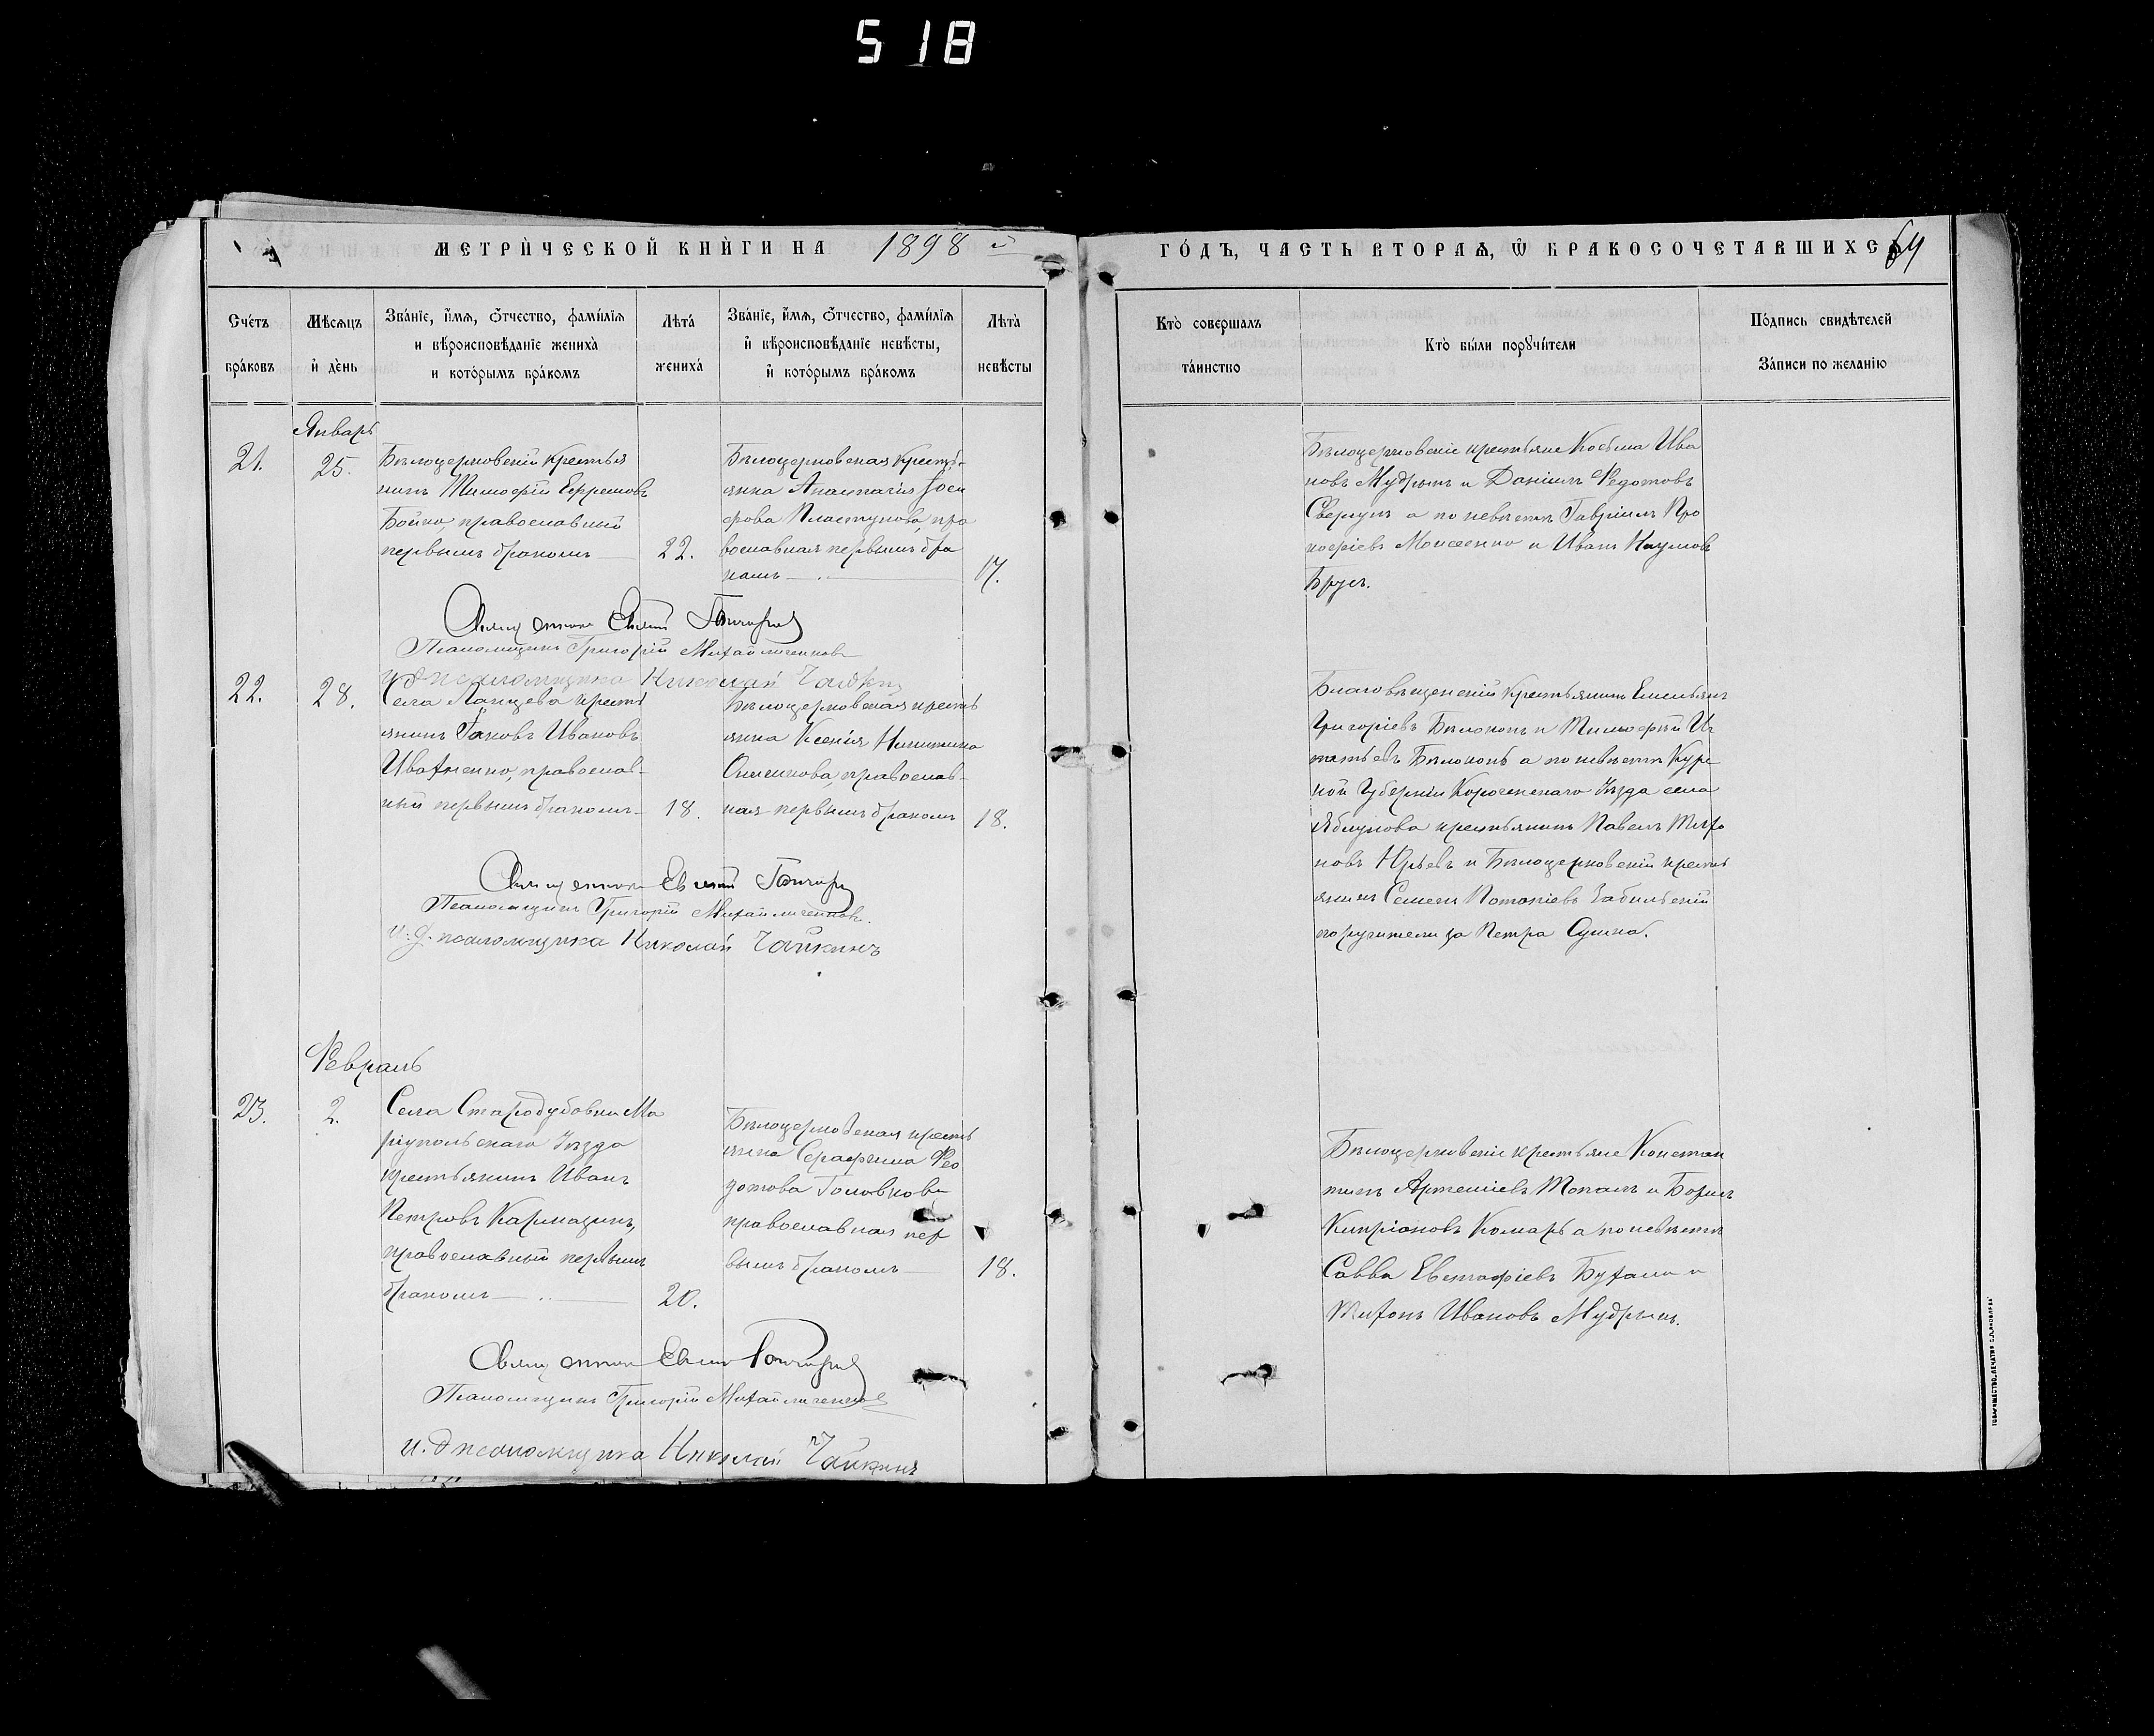 518
МЕТРИ́ЧЕСКОЙ КНИ́ГИ НА 1898 й
ГО́ДЪ, ЧАСТЬ ВТОРАѦ, Ѿ БРАКОСОЧЕТАВШИХСѦ 64
Сче́тъ бра́ковъ
Мѣ́сѧцъ и҆ де́нь
Зва́нїе, и҆́мѧ, ѻ҆́тчество, фами́лїѧ
и вѣроисповѣ́данїе жениха̀
и кото́рымъ бра́комъ
Лѣта́ жениха́
Зва́нїе, и҆́мѧ, ѻ҆́тчество, фами́лїѧ
и҆ вѣроисповѣ́данїе невѣ́сты,
и҆ кото́рымъ бра́комъ
Лѣта̀ невѣ́сты
Кто̀ соверша́лъ та́инство
Кто̀ бы́ли порꙋчи́тели
По́дпись свидѣ́телей
За́писи по жела́нїю
Январь
21.
25.
Бѣлоцерковскій крестья
нинъ Тимофій Ефремовъ
Бойко, православный
первымъ бракомъ
22.
Бѣлоцерковская кресть-
янка Анастасія Іоси
фова Пластунова, пра
вославная первымъ бра
комъ
17.
Бѣлоцерковскіе крестьяне Косьма Ива
новъ Мудрымъ и Даніилъ Федотовъ
а по невѣстѣ Гавріилъ Про
кофіевъ Моисеенко и Иванъ Наумовъ
Брусъ.
Псаломщикъ Григорій Михайличенковъ
и д псаломщика Николай Чайкинъ
22.
28.
Села Ланцева кресть
янинъ Іаковъ Ивановъ
Ивахненко, православ-
ный первымъ бракомъ
18.
Бѣлоцерковская кресть
янка Ксенія Никитина
православ-
ная первымъ бракомъ
18.
Благовѣщенскій крестьянинъ Емельянъ
Григоріевъ Бѣлоконь и Тимофѣй Иг
натьевъ Бѣлоконь а по невѣстѣ Курс
кой Губерніи Корочанскаго Уѣзда села
Яблунова крестьянинъ Павелъ Тихо
новъ Юрьевъ и Бѣлоцерковскій кресть
янинъ Семенъ Потапіевъ Забильскій
поручители за Петра Сушка.
Псаломщикъ Григорій Михайличенковъ.
и. д. псаломщика Николай Чайкинъ
Февраль
23.
2.
Села Стародубовки Ма
ріупольскаго Уѣзда
крестьянинъ Иванъ
Петровъ Кармазинъ,
православный первымъ
бракомъ
20.
Бѣлоцерковская кресть
янка Серафима Фео
дотова Головкова
православная пер
вымъ бракомъ
18.
Бѣлоцерковскіе крестьяне Констан
тинъ Артеміевъ Топалъ и Борисъ
Кипріановъ Комарь а по невѣстѣ
Савва Евстафіевъ и
Тихонъ Ивановъ Мудрымъ.
Псаломщикъ Григорій Михайличенковъ
и. д псаломщика Николай Чайкинъ